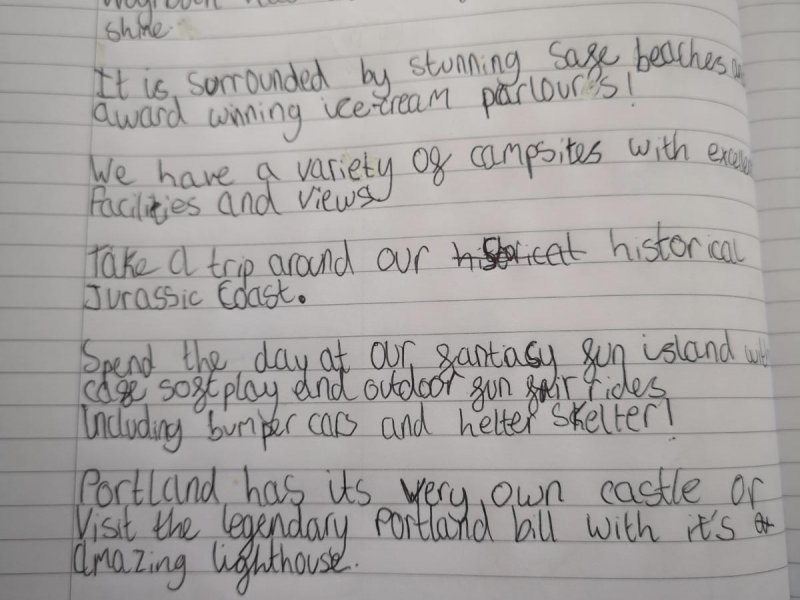 shine.
It is surrounded by stunning safe beaches
award winning icecream parlour's!
We have a variety of campsites with
Facilities and views
Take a trip around our historical historical
Jurassic Coast.
Spend the day at our fantasy fun island with
cafe softplay and outdoor fun fair rides
Including bumper cars and helter skelter!
Portland has its very own castle or
Visit the legendary Portland bill with it's
amazing lighthouse.